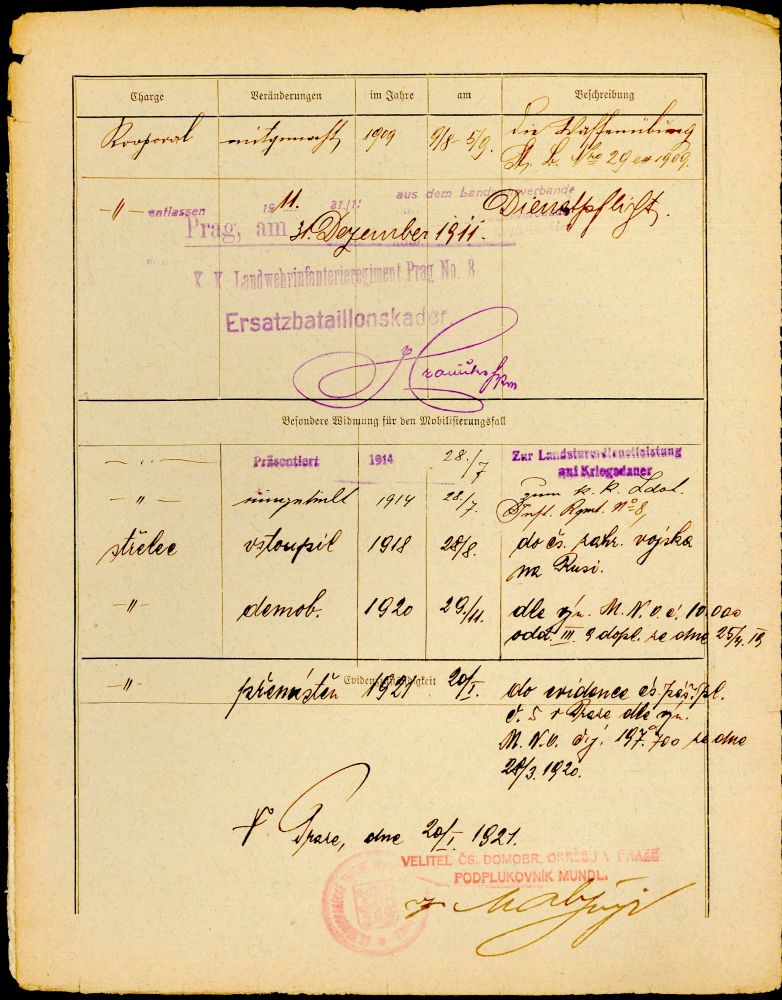 Charge Veränderungen im Jahre am Beschreibung
Korporal mitgemacht 1909 9/8 - 5/9. die Waffenübung
A. B. Nro 29 ex 1909.
-"- entlassen 1911. 31/12 aus dem Landwehrverbande
Dienstpflicht.
Prag, am 31. Dezember 1911.
K. K. Landwehrinfanterieregiment Prag No. 8
Ersatzbataillonskader
Besondere Widmung für den Mobilisierungsfall
-"- Präsentiert 1914 28./7 Zur Landsturmdienstleistung
auf Kriegsdauer
-"- eingeteilt 1914 28./7. zum k. k. Ldst.
Inft. Rgmt. No 8,
střelec vstoupil 1918 28/8. do čs. zahr. vojska
na Rusi.
-"- demob. 1920 29./11. dle výn. M. N. O. č. 10.000
odd. III. 9 dopl. ze dne
Evidenzzuständigkeit
-"- přemístěn 1921 20/I. do evidence čs. pěš. pl.
č. 5 v Praze dle výn.
M. N. O. čj. 197.700 ze dne
28/3. 1920.
V Praze, dne 20/I. 1921.
VELITEL ČS. DOMOBR. OKRESU V PRAZE
PODPLUKOVNÍK MUNDL.